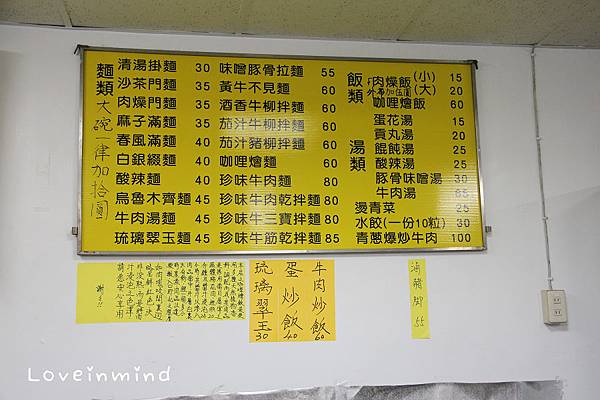 麵類 大碗一律加拾圓
清湯掛麵 30
沙茶門麵 35
肉燥門麵 35
麻子滿麵 35
春風滿麵 40
白銀綴麵 40
酸辣麵 40
烏魯木齊麵 45
牛肉湯麵 45
琉璃翠玉麵 45
味噌豚骨拉麵 55
黃牛不見麵 60
酒香牛柳拌麵 60
茄汁牛柳拌麵 60
茄汁豬柳拌麵 60
咖哩燴麵 60
珍味牛肉麵 80
珍味牛肉乾拌麵 80
珍味牛三寶拌麵 80
珍味牛筋乾拌麵 85
飯類
肉燥飯(小) 15
(大) 20
外帶加伍圓
咖哩燴飯 60
湯類
蛋花湯 15
貢丸湯 20
餛飩湯 25
酸辣湯 25
豚骨味噌湯 30
牛肉湯 65
燙青菜 25
水餃(一份10粒) 30
青蔥爆炒牛肉 100
琉璃翠玉 30
蛋炒飯 40
牛肉炒飯 60
滷豬腳 55
謝謝!!
Loveinmind